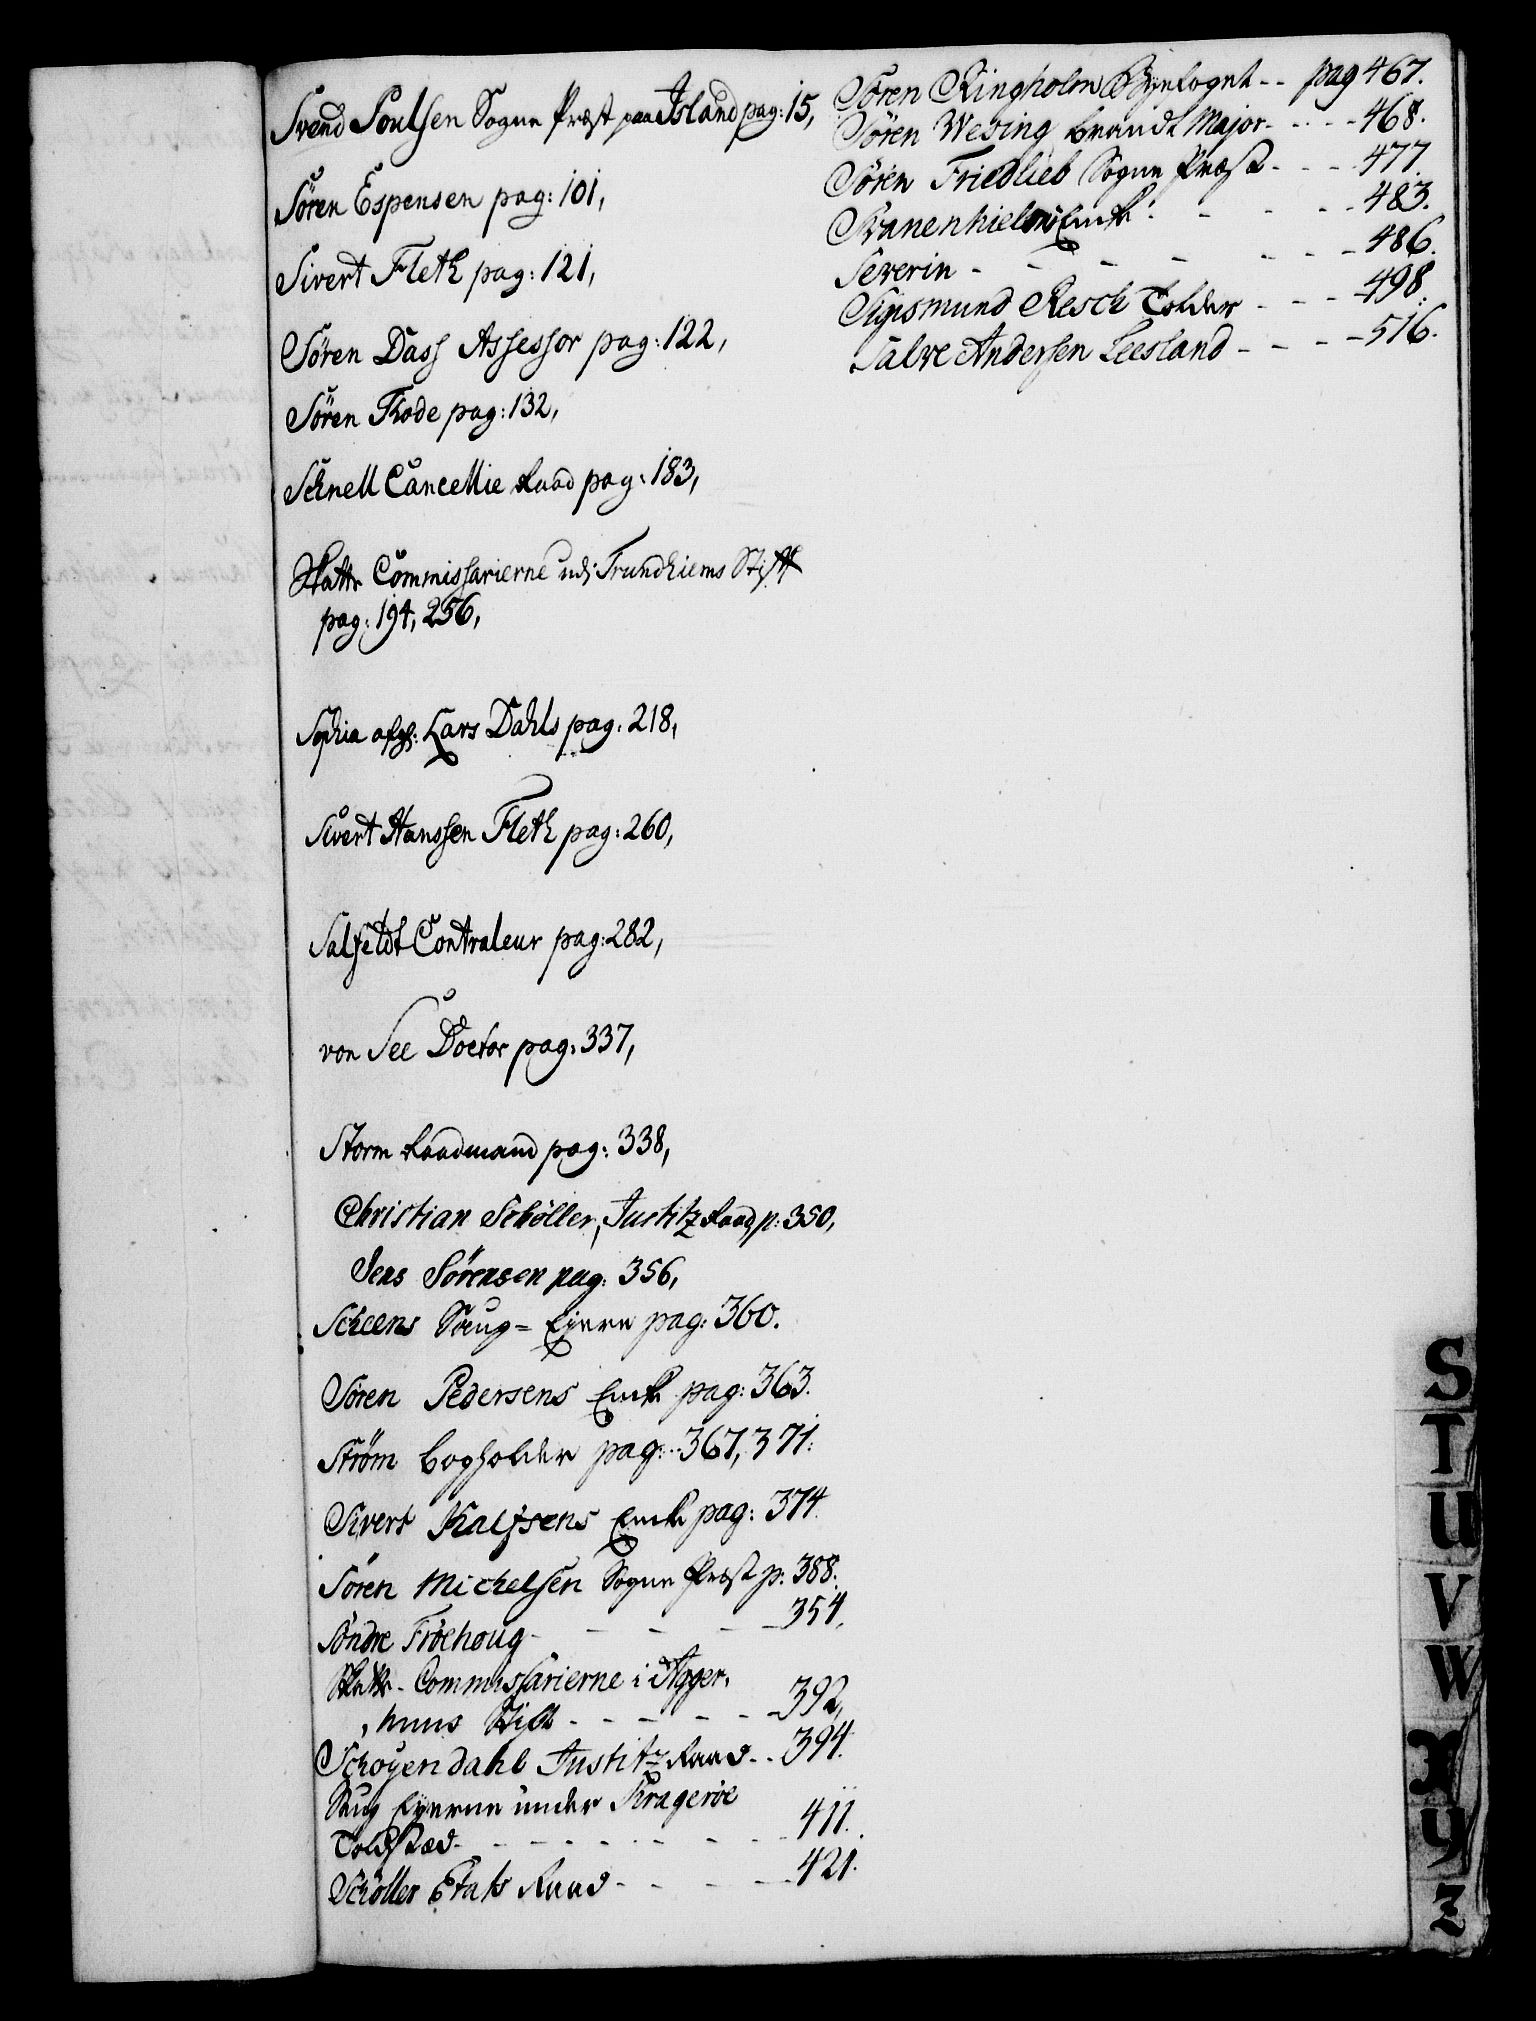 Svend Poulsen Sogne Præst paa Island pag: 15,
Sören Espensen pag: 101,
Sivert Fleth pag: 121,
Sören Dass Assessor pag: 122,
Sören Thode pag: 132,
Schnell Cancellie Raad pag: 183,
Skatte Commissarierne udi Trundhiems Stifft
pag: 194, 256,
Sophia afg: Lars Dahls pag: 218,
Sivert Hanssen Fleth pag: 260,
Salfeldt Contraleur pag: 282,
von See Doctor pag: 337,
Storm Raadmand pag: 338,
Christian Schøller, Justitz Raad p: 350,
Jens Sörensen pag: 356,
Scheens Saug= Eyere pag: 360.
Sören Pedersens Enke pag: 363.
Ström Bogholder pag: 367, 371:
Sivert Kalfsens Enke pag: 374.
Sören Michelsen Sogne Præst p: 388.
Söndre Fröehoug - - - - 354.
Skatte-Commissarierne i Agger,
,huus Stift - - - - - 392,
Schoyendahl Justitz Raad - - 394.
Saug Eyerne under Krageröe
Toldsted - - - - - - - 411.
Schöller Etats Raad - - - - 421.
Sören Ringholm Byefoget - - pag 467.
Sören Wesing Brandt Major - - - - 468.
Sören Friedlieb Sogne Præst - - - - 477.
Svanenhielms Enke - - - - 483.
Severin - - - - - - - 486.
Sigismund Resch Tolder - - - - 498.
Salve Andersen Leesland - - - - 516.
S
T
U
V
W
X
Y
Z